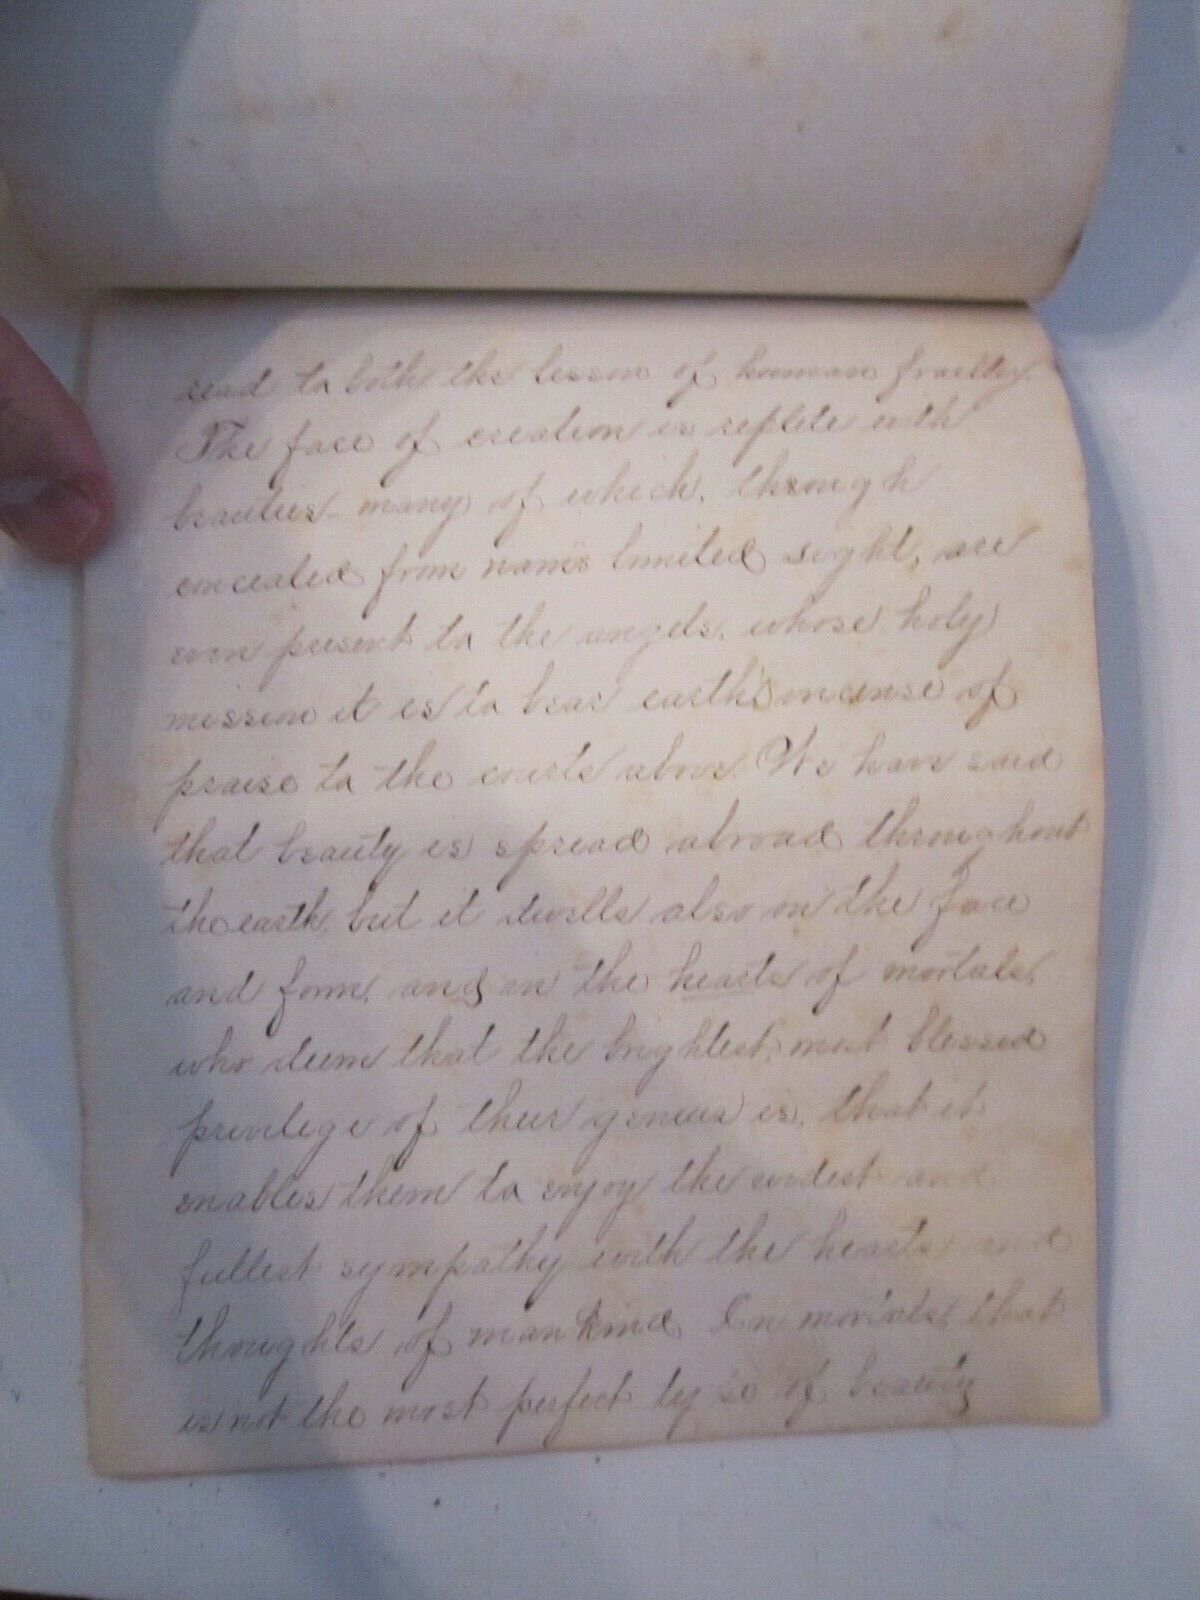 read to both the lesson of human frailty.
The face of creation is replete with
beauties - many of which, through
concealed from mans limited sight, are
even present to the angels, whose holy
mission it is to bear earth's incense of
praise to the courts above. We have said
that beauty is spread abroad throughout
the earth, but it dwells also on the face
and form, and in the hearts of mortals,
who deem that the brightest, most blessed
privilege of their genius is, that it
enables them to enjoy the widest and
fullest sympathy with the hearts and
thoughts of mankind. In mortals, that
is not the most perfect type of beauty